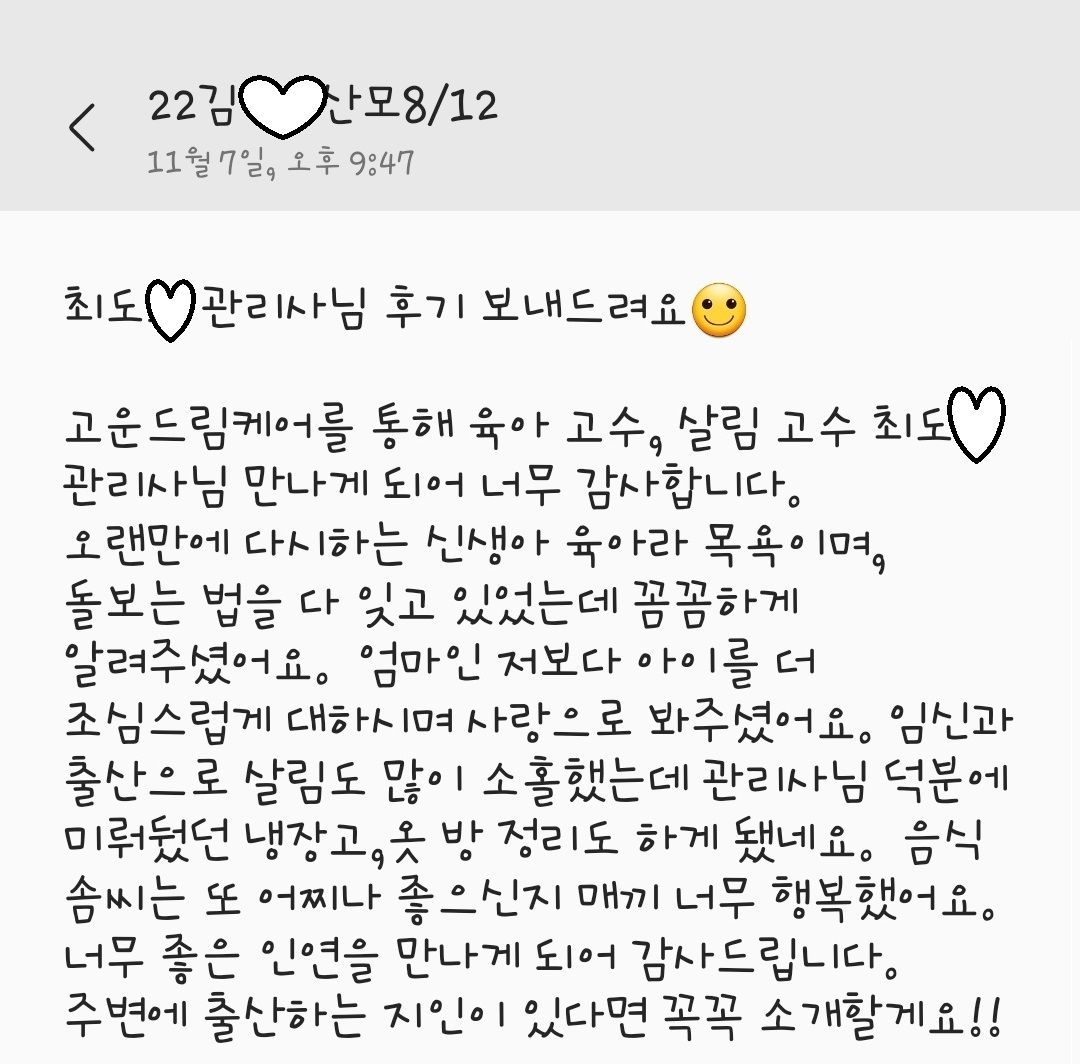 22김 산모8/12
11월 7일, 오후 9:47
최도 관리사님 후기 보내드려요
고운드림케어를 통해 육아 고수, 살림 고수 최도
관리사님 만나게 되어 너무 감사합니다.
오랜만에 다시하는 신생아 육아라 목욕이며,
돌보는 법을 다 잊고 있었는데 꼼꼼하게
알려주셨어요. 엄마인 저보다 아이를 더
조심스럽게 대하시며 사랑으로 봐주셨어요. 임신과
출산으로 살림도 많이 소홀했는데 관리사님 덕분에
미뤄뒀던 냉장고,옷 방 정리도 하게 됐네요. 음식
솜씨는 또 어찌나 좋으신지 매끼 너무 행복했어요.
너무 좋은 인연을 만나게 되어 감사드립니다.
주변에 출산하는 지인이 있다면 꼭꼭 소개할게요!!